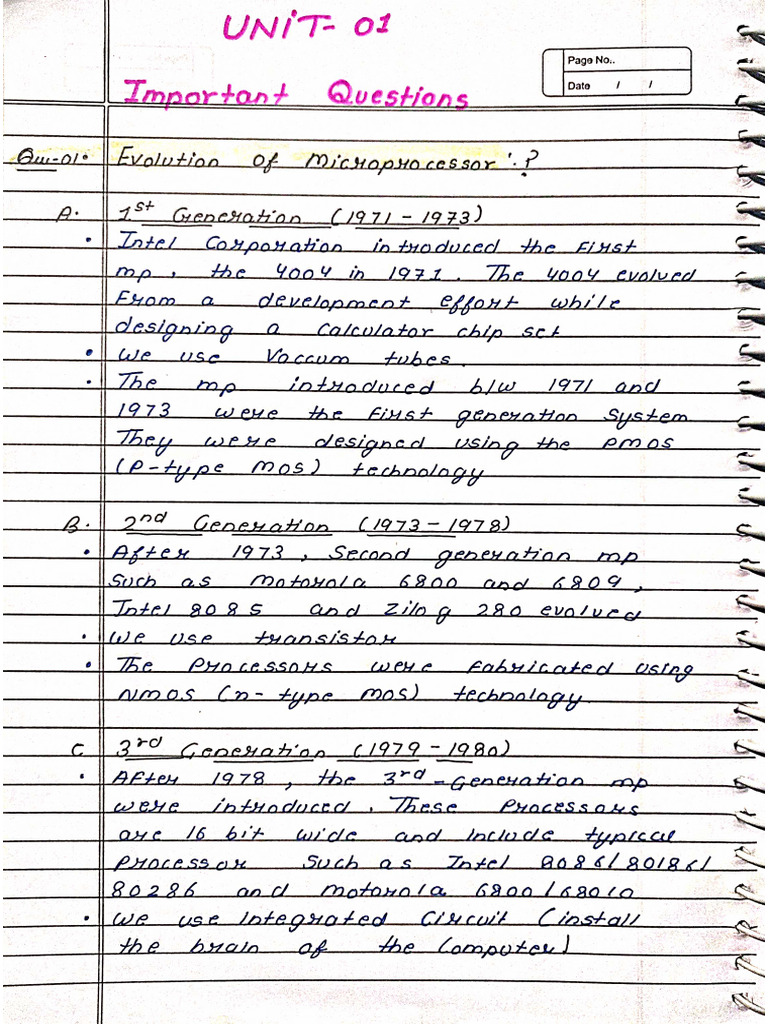 UNIT- 01
Page No..
Date / /
Important Questions
Qu-01. Evolution of Microprocessor.?
A. 1st Generation (1971-1973)
• Intel Corporation introduced the First
mp, the 4004 in 1971. The 4004 evolved
From a development effort while
designing a calculator chip set
• We use Vaccum tubes.
• The mp introduced b/w 1971 and
1973 were the first generation system
They were designed using the PMOS
(P-type MOS) technology
B. 2nd Generation (1973-1978)
• After 1973, Second generation mp
such as Motorola 6800 and 6809,
Intel 8085 and Zilog 280 evolved
• We use transistor
• The Processors were Fabricated using
NMOS (n-type MOS) technology.
C. 3rd Generation (1979-1980)
• After 1978, the 3rd-Generation mp
were introduced. These Processors
are 16 bit wide and include typical
Processor such as Intel 8086/80186/
80286 and Motorola 6800/68010
• We use Integrated Circuit (install
the brain of the Computer)